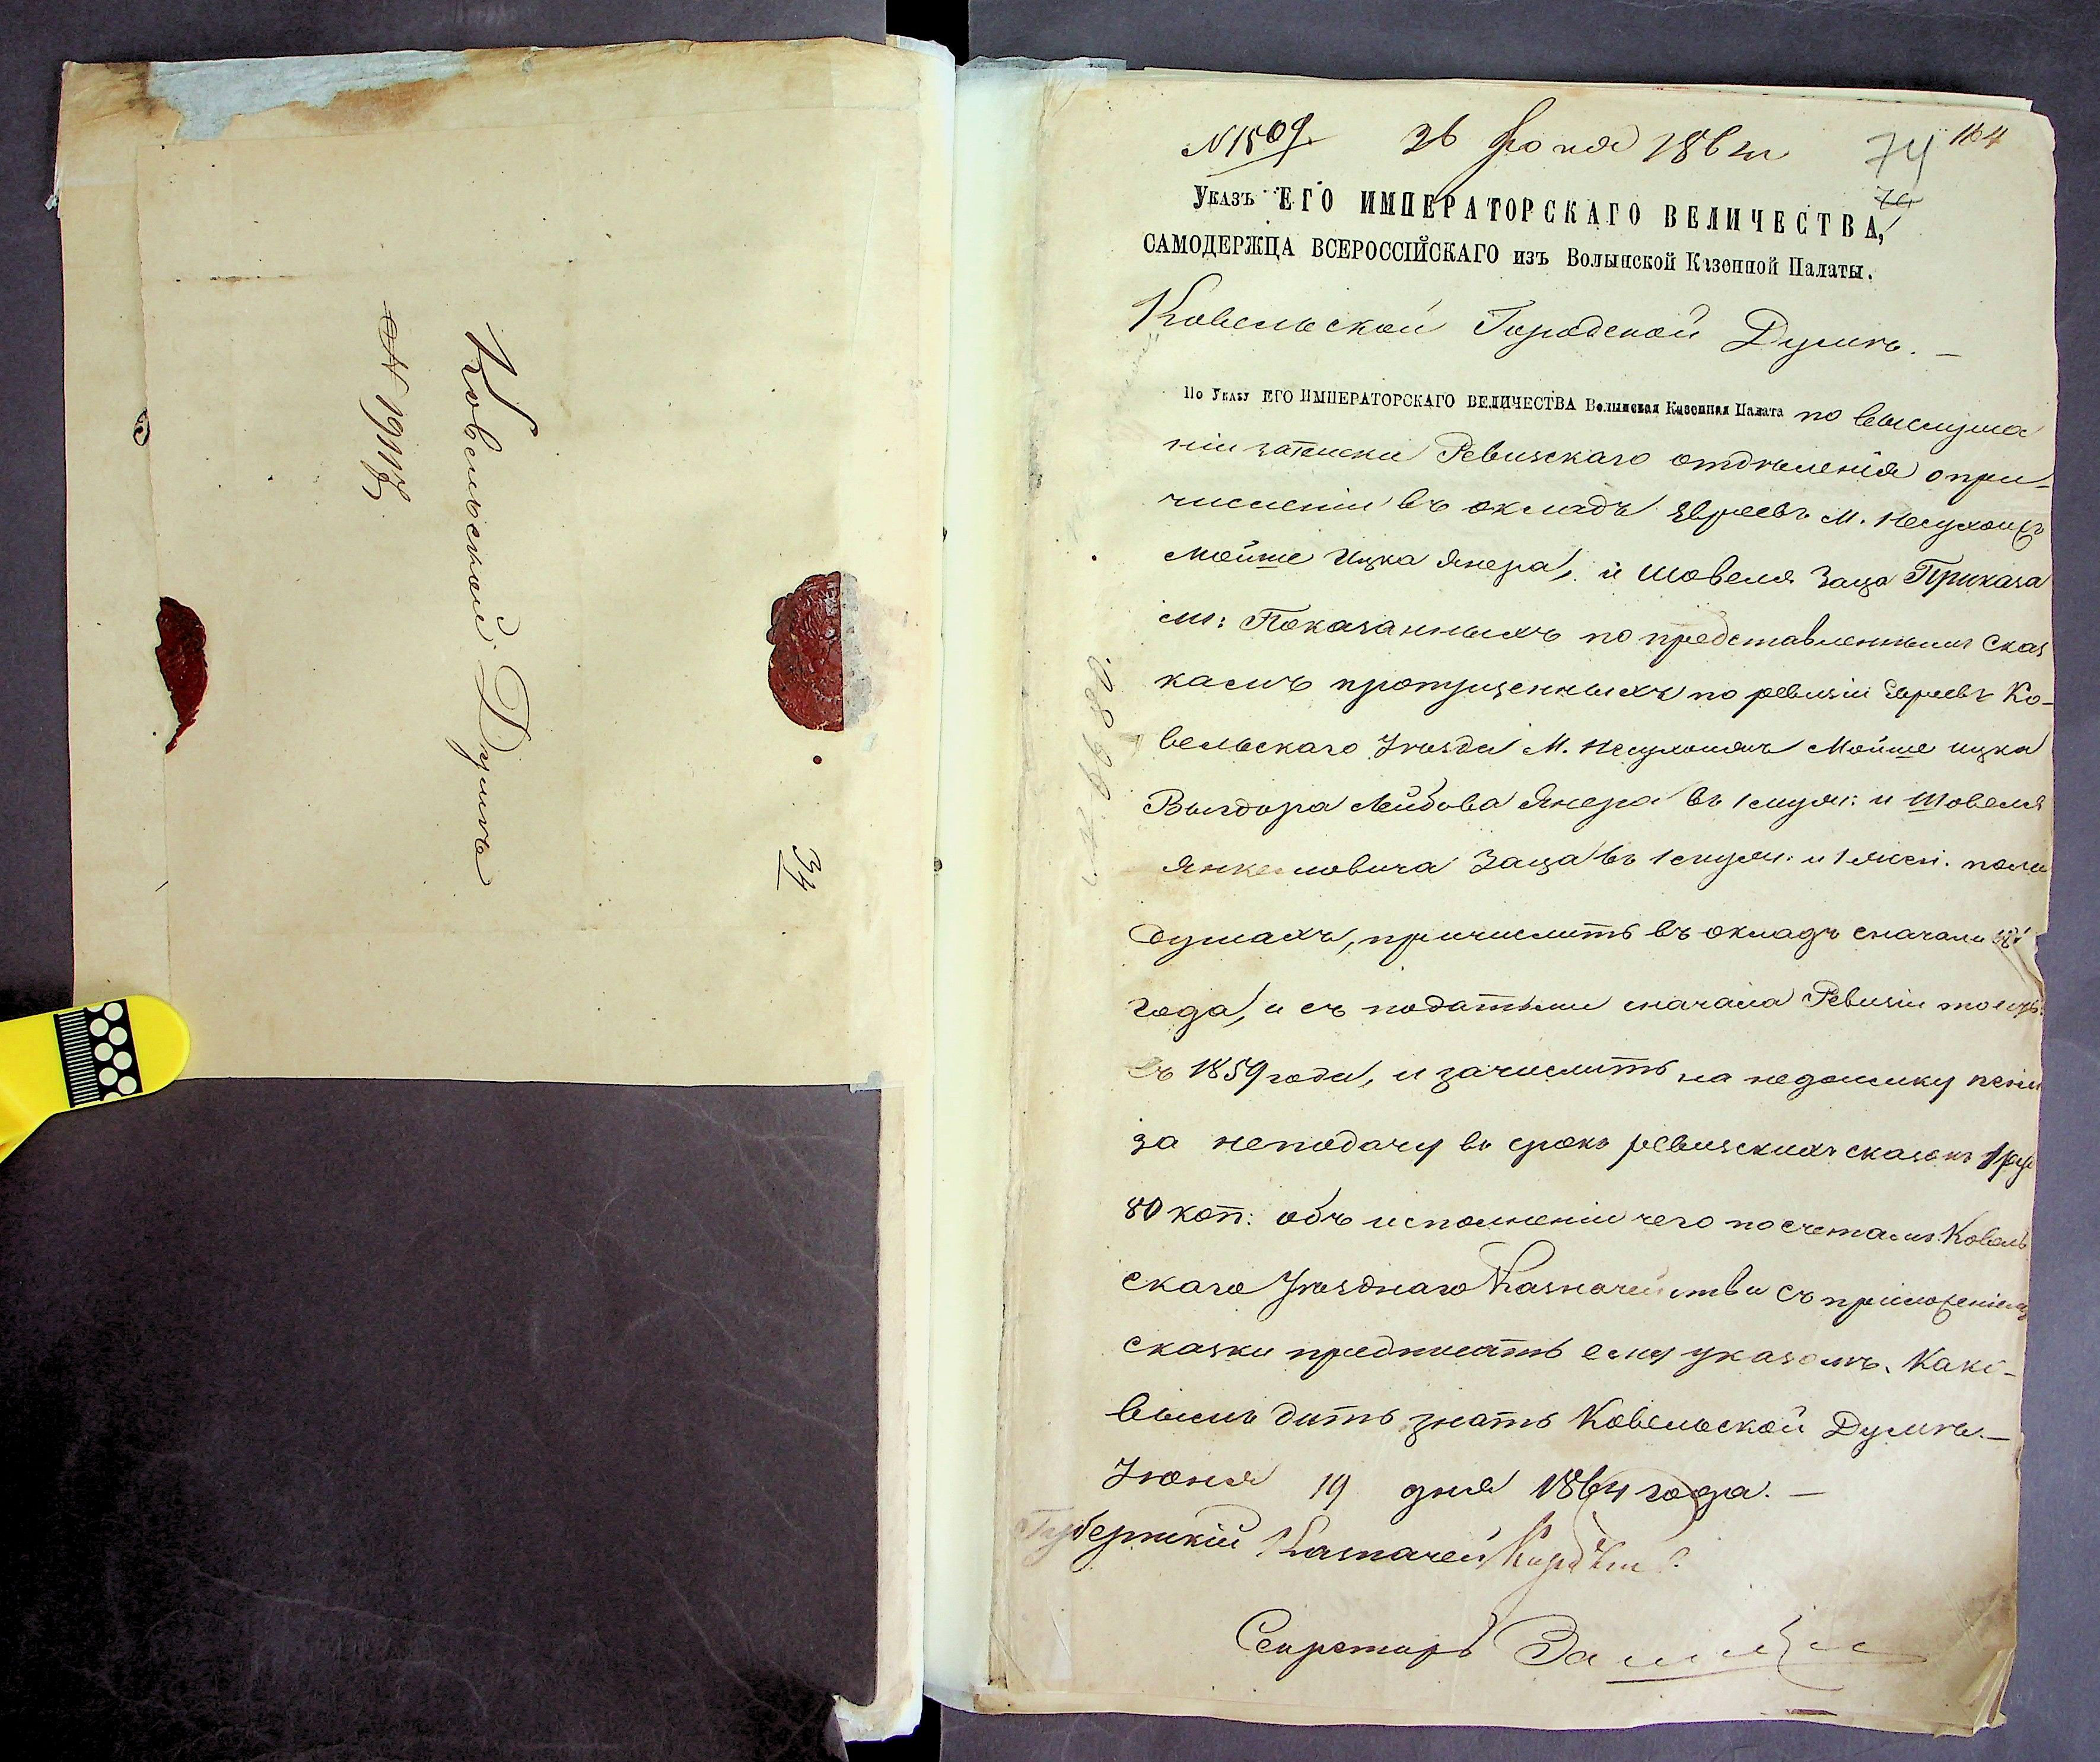 Ковельской Думѣ
№ 19112
34
№ 1509. 26 Юня 1864
74 164
74
Указъ ЕГО ИМПЕРАТОРСКАГО ВЕЛИЧЕСТВА,
САМОДЕРЖЦА ВСЕРОССІЙСКАГО изъ Волынской Казенной Палаты.
Ковельской Городской Думѣ. —
По Указу ЕГО ИМПЕРАТОРСКАГО ВЕЛИЧЕСТВА Волынская Казенная Палата по выслуша
ніи записки Ревизскаго отдѣленія о при-
численіи въ окладъ Евреевъ М. Несухоижъ
Мойше Ицка Янера, и Шовеля Заца Приказа
ли: Показанныхъ по представленнымъ Сказ
камъ пропущенныхъ по ревизіи Евреевъ Ко-
вельскаго Уѣзда М. Несухоижъ Мойше ицка
Выгдора Лейбова Янера въ 1 муж: и Шовеля
Янкелловича Заца въ 1 муж. и 1 жен. пола
душахъ, причислить въ окладъ сначала
года, и съ податьми сначала Ревизіи то есть
съ 1859 года, и зачислить на недоимку пени
за неподачу въ срокъ ревизскихъ сказокъ 1 ру
80 коп: объ исполненіи чего по счетамъ Ковель
скаго Уѣзднаго Казначейства съ приложеніемъ
сказки предписать ему указомъ. Како-
вымъ дать знать Ковельской Думѣ. —
Іюня 19 дня 1864 года. —
Губернскій Казначей
Секретарь